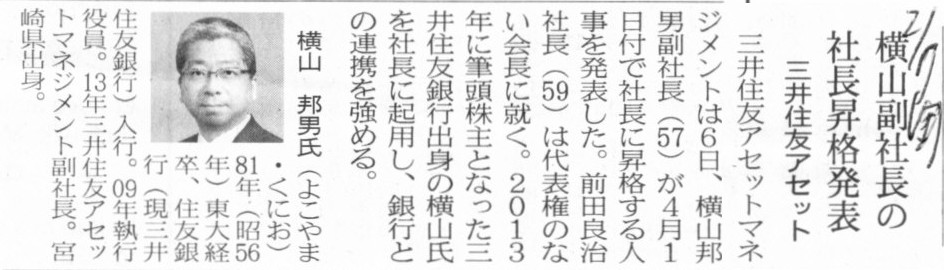 横山副社長の
社長昇格発表
三井住友アセット
三井住友アセットマネ
ジメントは6日、横山邦
男副社長(57)が4月1
日付で社長に昇格する人
事を発表した。前田良治
社長(59)は代表権のな
い会長に就く。2013
年に筆頭株主となった三
井住友銀行出身の横山氏
を社長に起用し、銀行と
の連携を強める。
横山 邦男氏(よこやま
・くにお)
81年(昭56
年)東大経
卒、住友銀
行(現三井
住友銀行)入行。09年執行
役員。13年三井住友アセッ
トマネジメント副社長。宮
崎県出身。